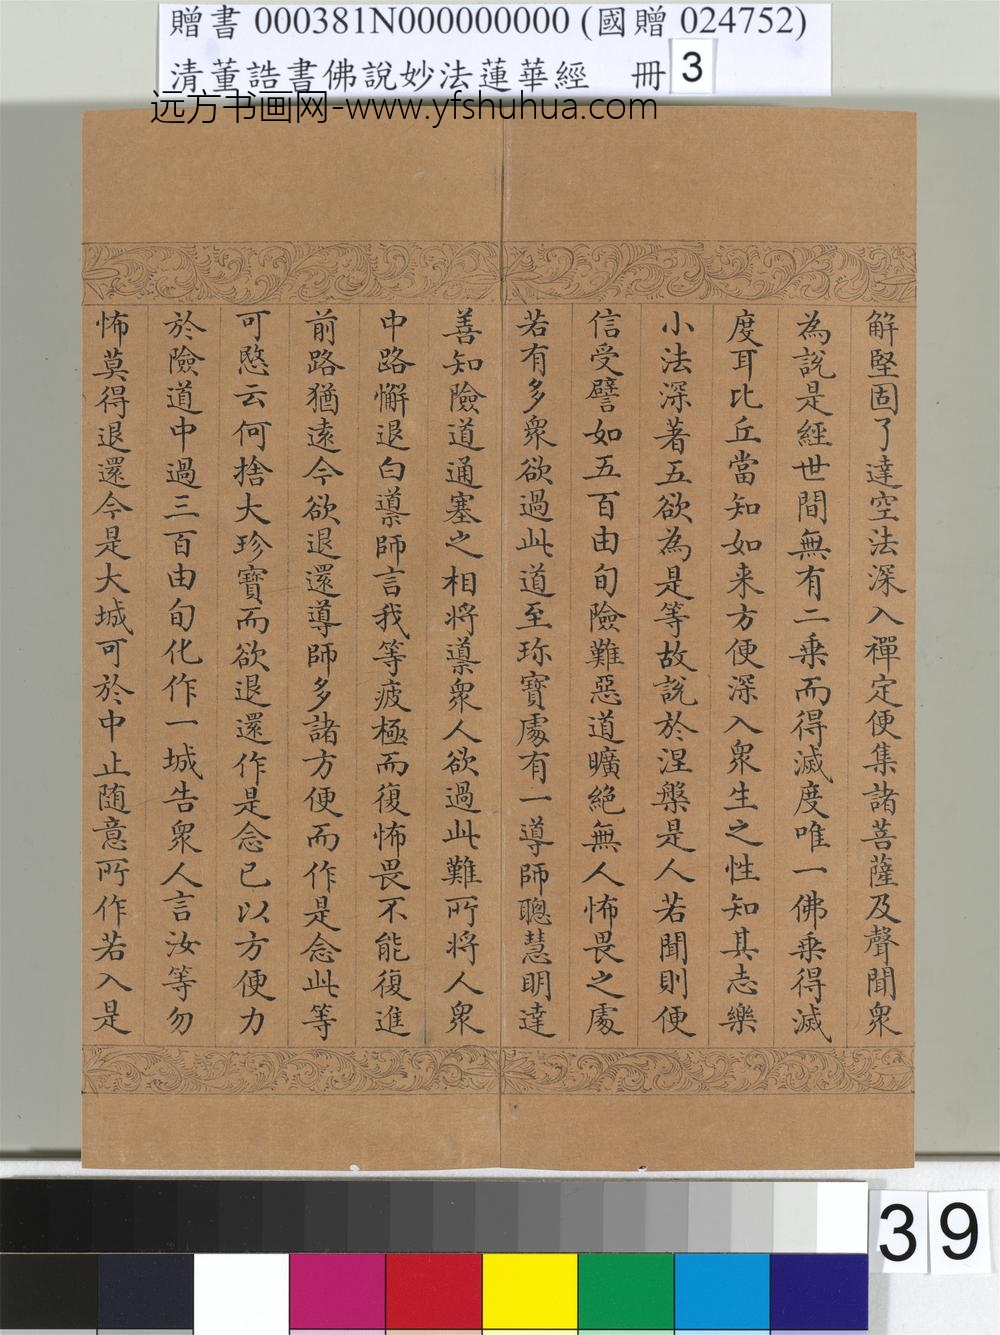 贈書 000381N000000000 (國贈 024752)
清董誥書佛說妙法蓮華經 冊 3
远方书画网-www.yfshuhua.com
解堅固了達空法深入禪定便集諸菩薩及聲聞衆
為說是經世間無有二乗而得滅度唯一佛乗得滅
度耳比丘當知如来方便深入衆生之性知其志樂
小法深著五欲為是等故說於涅槃是人若聞則便
信受譬如五百由旬險難惡道曠絶無人怖畏之處
若有多衆欲過此道至珎寶處有一導師聰慧明達
善知險道通塞之相将導衆人欲過此難所将人衆
中路懈退白導師言我等疲極而復怖畏不能復進
前路猶遠今欲退還導師多諸方便而作是念此等
可愍云何捨大珍寶而欲退還作是念已以方便力
於險道中過三百由旬化作一城告衆人言汝等勿
怖莫得退還今是大城可於中止随意所作若入是
39